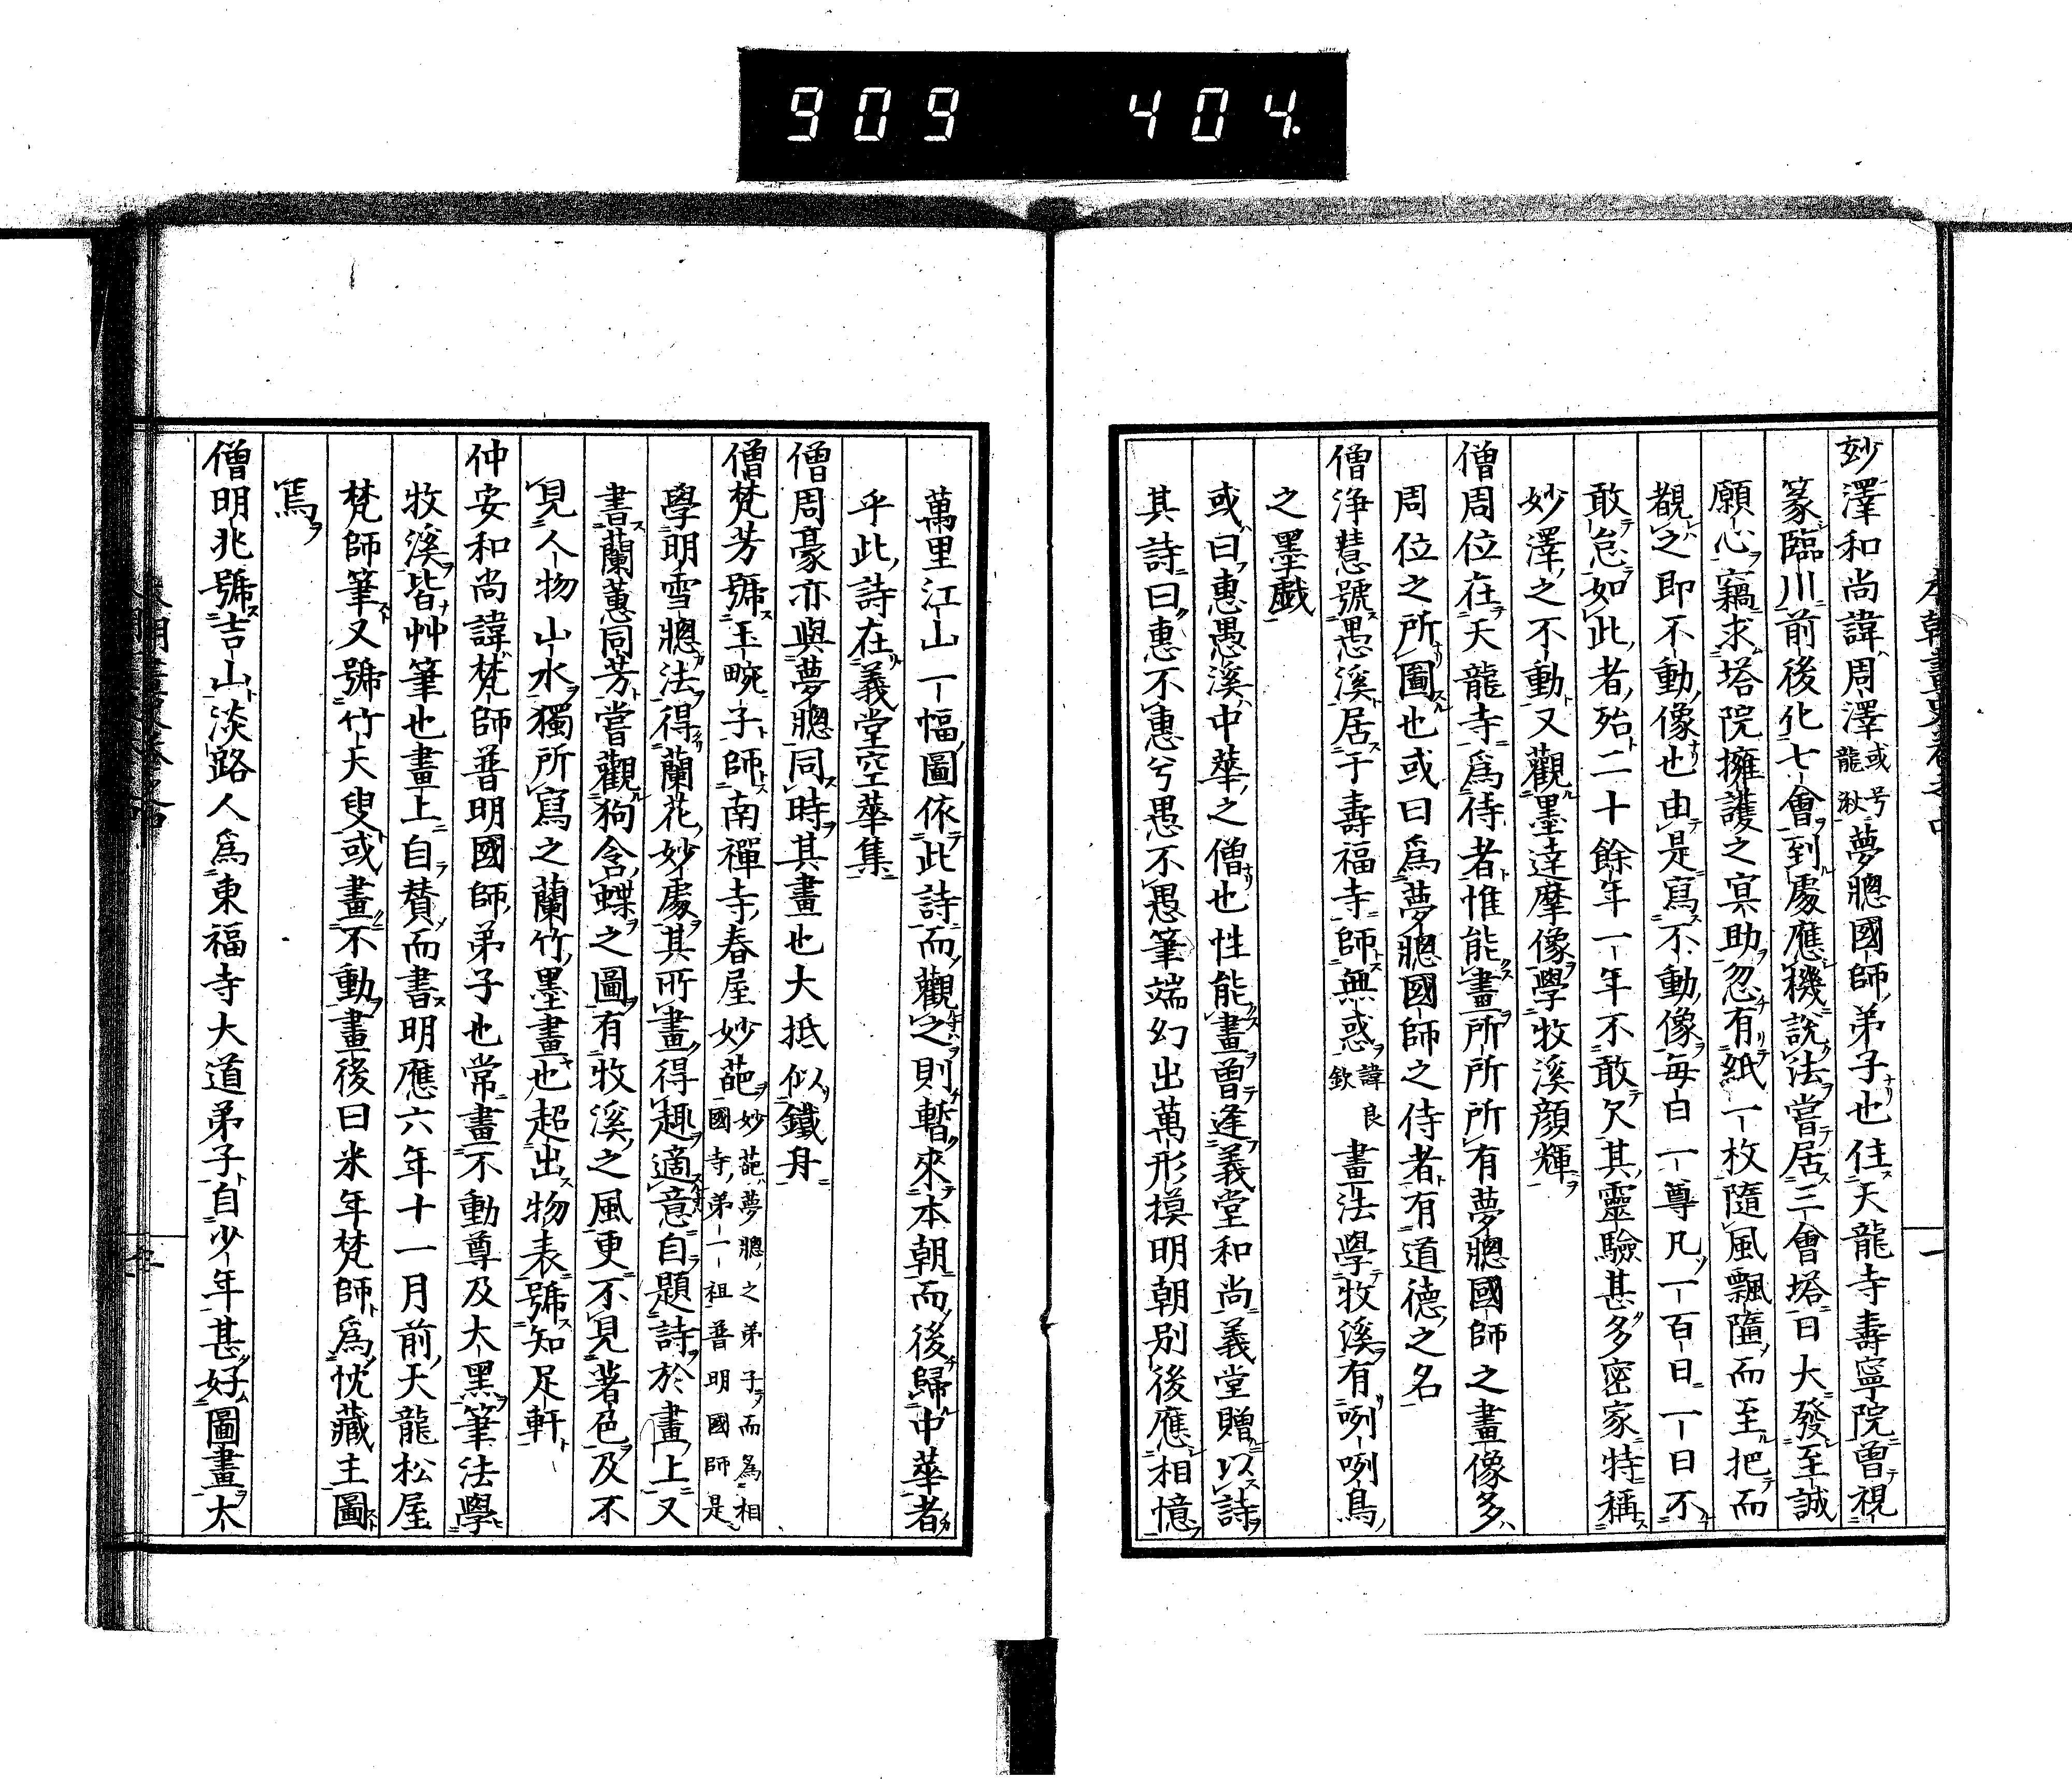 909 404.
妙澤和尚諱周澤或号龍湫夢聰國師弟子也住天龍寺壽寧院曾視
篆臨川前後化七會到處應機說法當居三會塔日大發至誠
願心竊求塔院擁護之冥助忽有紙一枚隨風飄墮而至把而
覩之即不動像也由是寫不動像每日一尊凡一百日一日不
敢怠如此者殆二十餘年一年不敢欠其靈驗甚多密家特稱
妙澤之不動又觀墨達摩像學牧溪顏輝
僧周位在天龍寺爲侍者惟能畫所所所有夢聰國師之畫像多
周位之所圖也或曰爲夢聰國師之侍者有道德之名
僧淨慧號愚溪居于壽福寺師無惑諱良欽畫法學牧溪有咧咧鳥
之墨戯
或曰惠愚溪中華之僧也性能畫曾逢義堂和尚義堂贈以詩
其詩曰惠不惠兮愚不愚筆端幻出萬形摸明朝別後應相憶
萬里江山一幅圖依此詩而觀之則暫來本朝而後歸中華者
乎此詩在義堂空華集
僧周豪亦與夢聰同時其畫也大抵似鐵舟
僧梵芳號玉畹子師南禪寺春屋妙葩妙葩夢聰之弟子而爲相國寺弟一祖普明國師是
學明雪聰法得蘭花妙處其所畫得趣適意自題詩於畫上又
書蘭蕙同芳嘗觀狗含蝶之圖有牧溪之風更不見著色及不
見人物山水獨所寫之蘭竹墨畫也超出物表號知足軒
仲安和尚諱梵師普明國師弟子也常畫不動尊及大黑筆法學
牧溪皆艸筆也畫上自賛而書明應六年十一月前天龍松屋
梵師筆又號竹天叟或畫不動畫後曰米年梵師爲忱藏主圖
焉
僧明兆號吉山淡路人爲東福寺大道弟子自少年甚好圖畫大